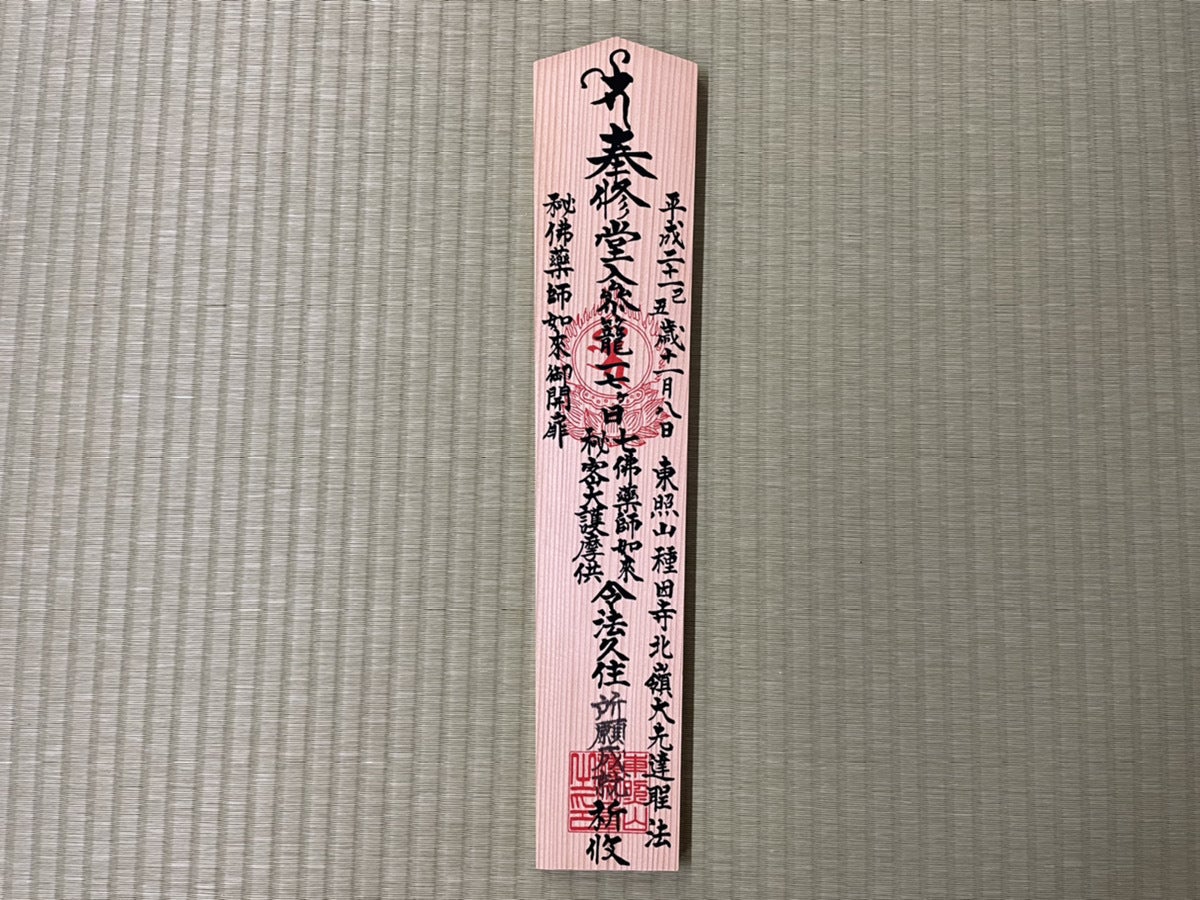 平成二十一己丑歳十一月八日 東照山種田寺北嶺大先達聖法
奉修堂入參籠一七ヶ日
七佛薬師如來
秘密大護摩供
令法久住所願成就祈收
秘佛藥師如來御開扉
東照山
之印